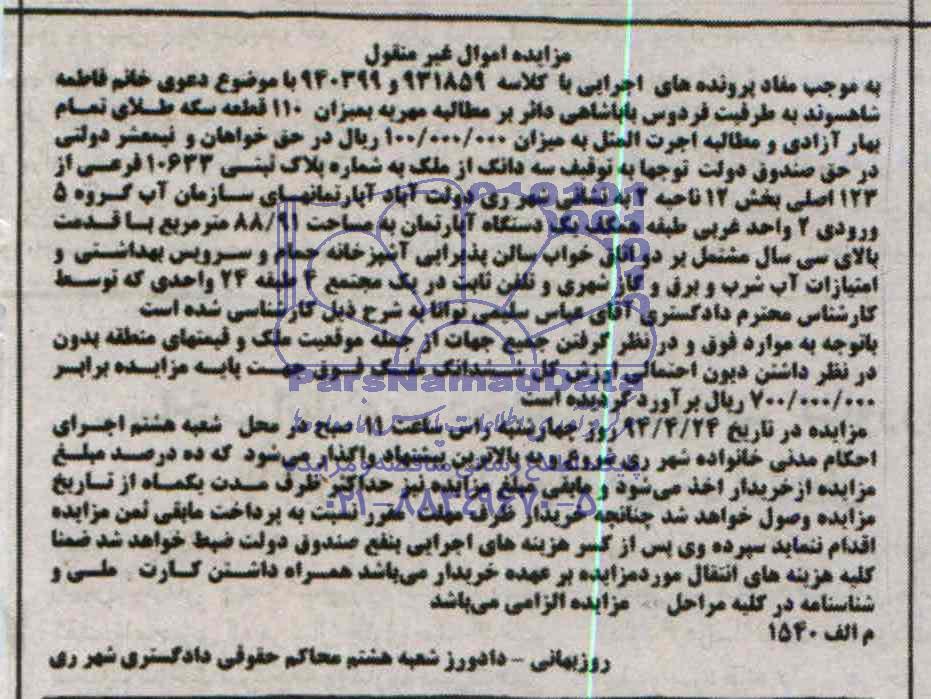 مزایده اموال غیر منقول
به موجب مفاد پرونده های اجرایی با کلاسه ۹۳۱۸۵۹ و ۹۴۰۳۹۹ با موضوع دعوی خانم فاطمه
شاهسوند به طرفیت فردوس باباشاهی دائر بر مطالبه مهریه بمیزان ۱۱۰ قطعه سکه طلای تمام
بهار آزادی و مطالبه اجرت المثل به میزان ۱۰۰/۰۰۰/۰۰۰ ریال در حق خواهان و نیمعشر دولتی
در حق صندوق دولت توجها به توقیف سه دانگ از ملک به شماره پلاک ثبتی ۱۰۶۳۳ فرعی از
۱۲۳ اصلی بخش ۱۲ ناحیه ۲ به نشانی شهر ری دولت آباد آپارتمانهای سازمان آب گروه ۵
ورودی ۲ واحد غربی طبقه همکف یک دستگاه آپارتمان به مساحت ۸۸/۹۱ مترمربع با قدمت
بالای سی سال مشتمل بر دو اتاق خواب سالن پذیرایی آشپزخانه حمام و سرویس بهداشتی و
امتیازات آب شرب و برق و گاز شهری و تلفن ثابت در یک مجتمع ۴ طبقه ۲۴ واحدی که توسط
کارشناس محترم دادگستری آقای عباس سلیمی توانا به شرح ذیل کارشناسی شده است
باتوجه به موارد فوق و در نظر گرفتن جمیع جهات از جمله موقعیت ملک و قیمتهای منطقه بدون
در نظر داشتن دیون احتمالی ارزش کل ششدانگ ملک فوق جهت پایه مزایده برابر
۷۰۰/۰۰۰/۰۰۰ ریال برآورد گردیده است
مزایده در تاریخ ۹۴/۴/۲۴ روز چهارشنبه راس ساعت ۱۱ صبح در محل شعبه هشتم اجرای
احکام مدنی خانواده شهر ری به بالاترین پیشنهاد واگذار می‌شود که ده درصد مبلغ
مزایده ازخریدار اخذ می‌شود و مابقی مبلغ مزایده نیز حداکثر ظرف مدت یکماه از تاریخ
مزایده وصول خواهد شد چنانچه خریدار ظرف مهلت مقرر نسبت به پرداخت مابقی ثمن مزایده
اقدام ننماید سپرده وی پس از کسر هزینه های اجرایی بنفع صندوق دولت ضبط خواهد شد ضمنا
کلیه هزینه های انتقال موردمزایده بر عهده خریدار می‌باشد همراه داشتن کارت ملی و
شناسنامه در کلیه مراحل مزایده الزامی می‌باشد
م الف ۱۵۴۰
روزبهانی - دادورز شعبه هشتم محاکم حقوقی دادگستری شهر ری
ParsNamadData
۰۲۱-۸۸۳۴۹۶۷۰-۵